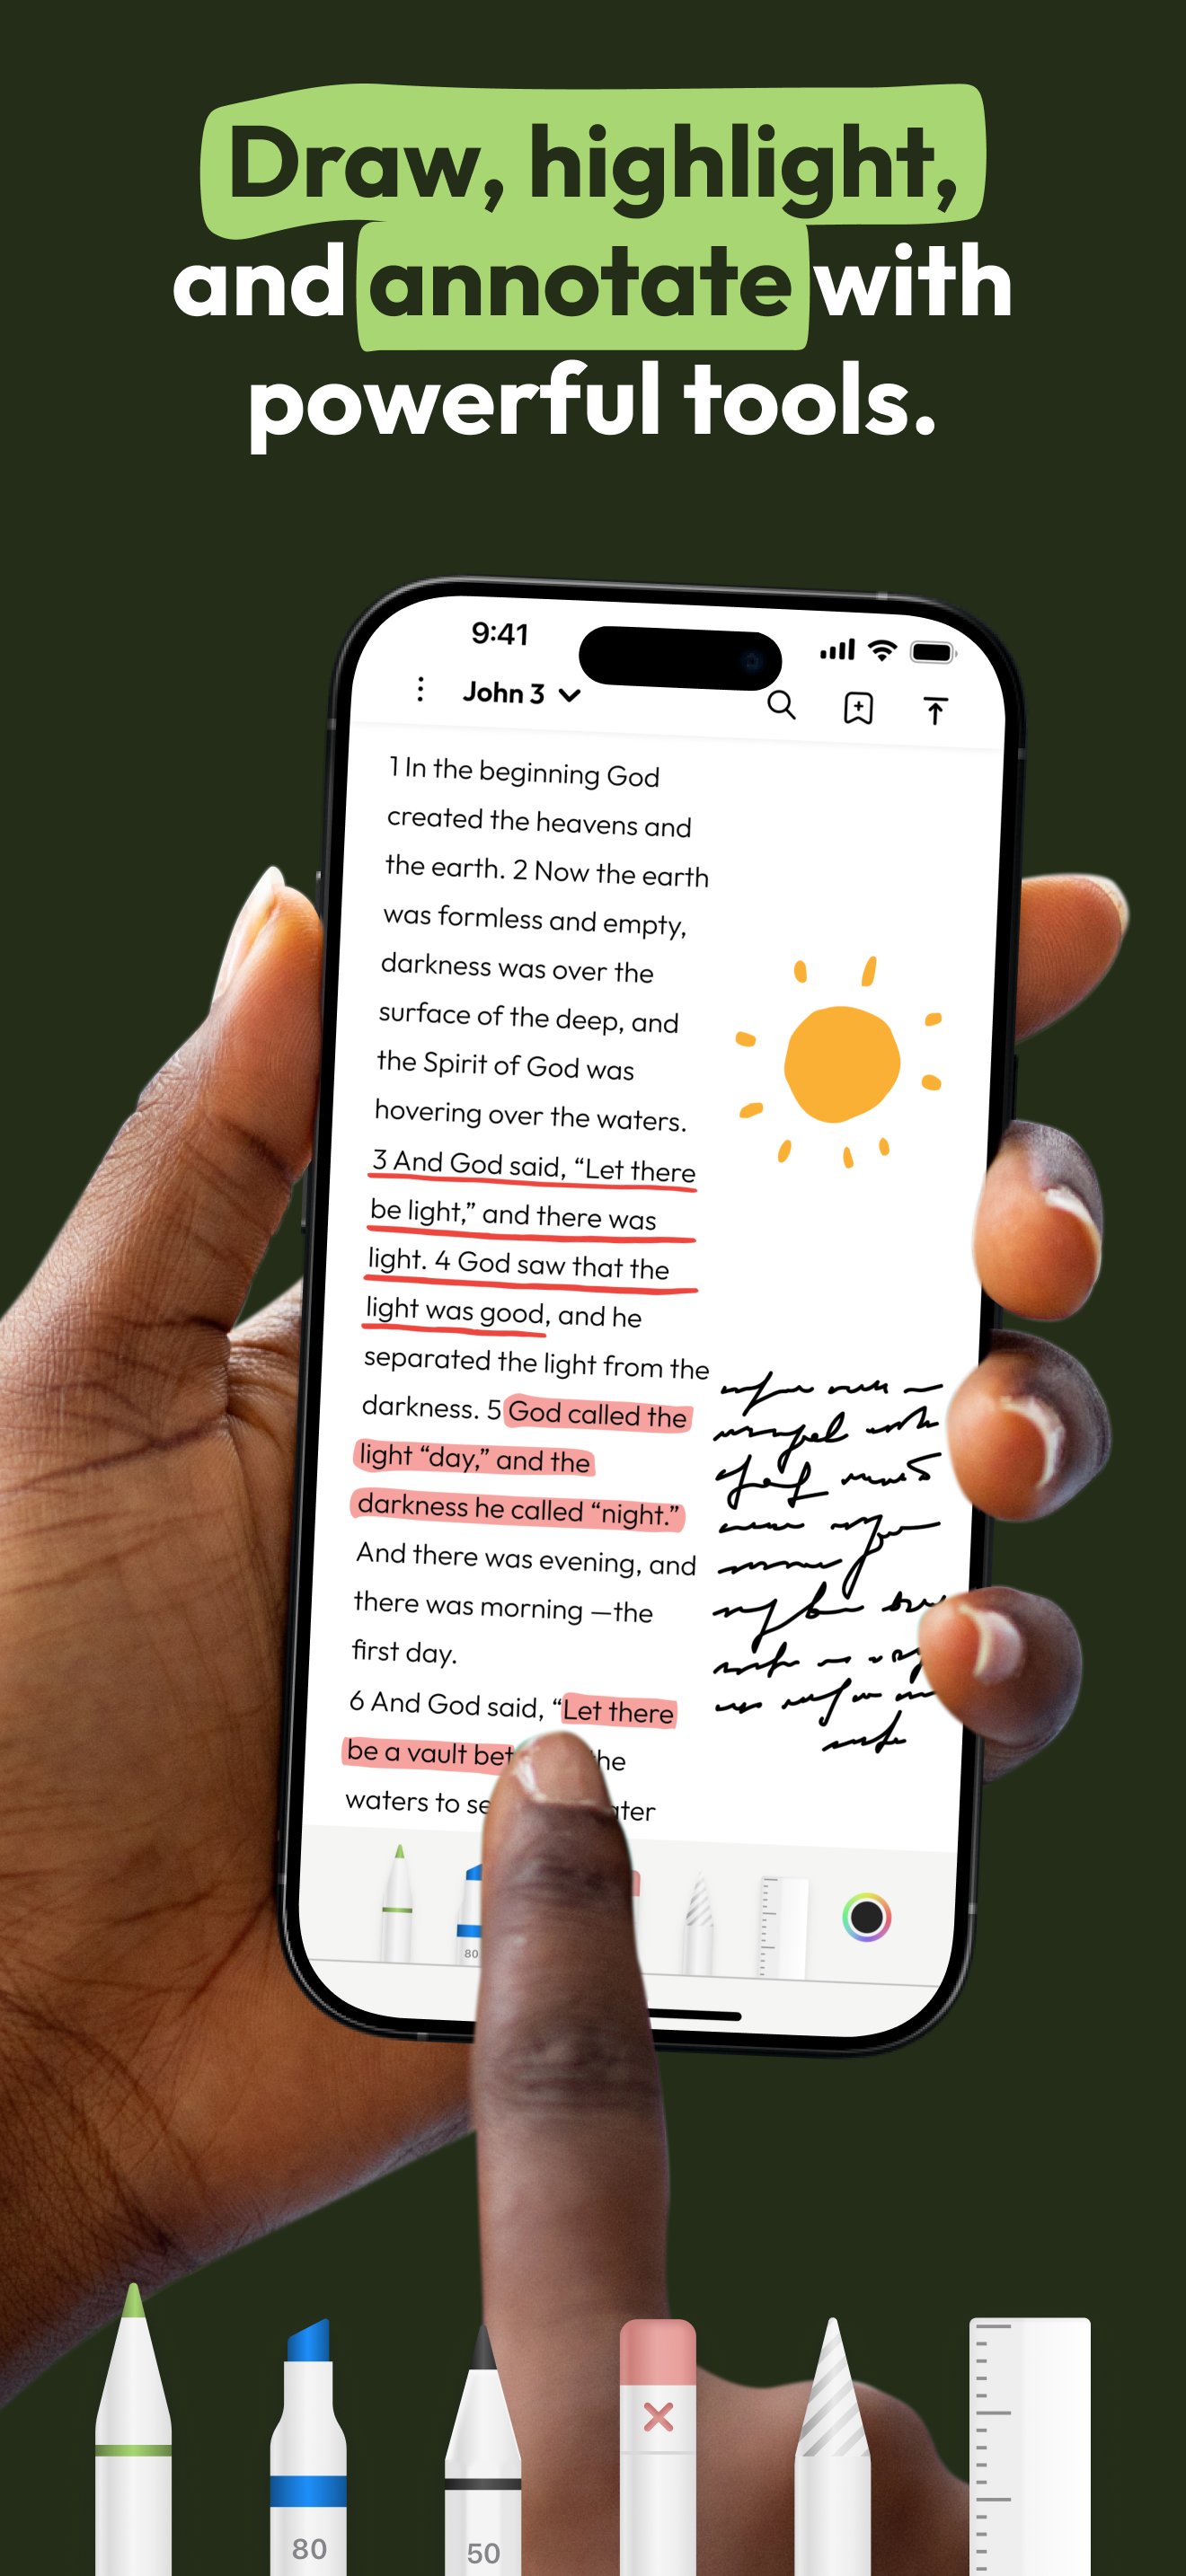 Draw, highlight,
and annotate with
powerful tools.
9:41
John 3
1 In the beginning God
created the heavens and
the earth. 2 Now the earth
was formless and empty,
darkness was over the
surface of the deep, and
the Spirit of God was
hovering over the waters.
3 And God said, “Let there
be light,” and there was
light. 4 God saw that the
light was good, and he
separated the light from the
darkness. 5 God called the
light “day,” and the
darkness he called “night.”
And there was evening, and
there was morning —the
first day.
6 And God said, “Let there
be a vault bet the
waters to se ater
80
80
50